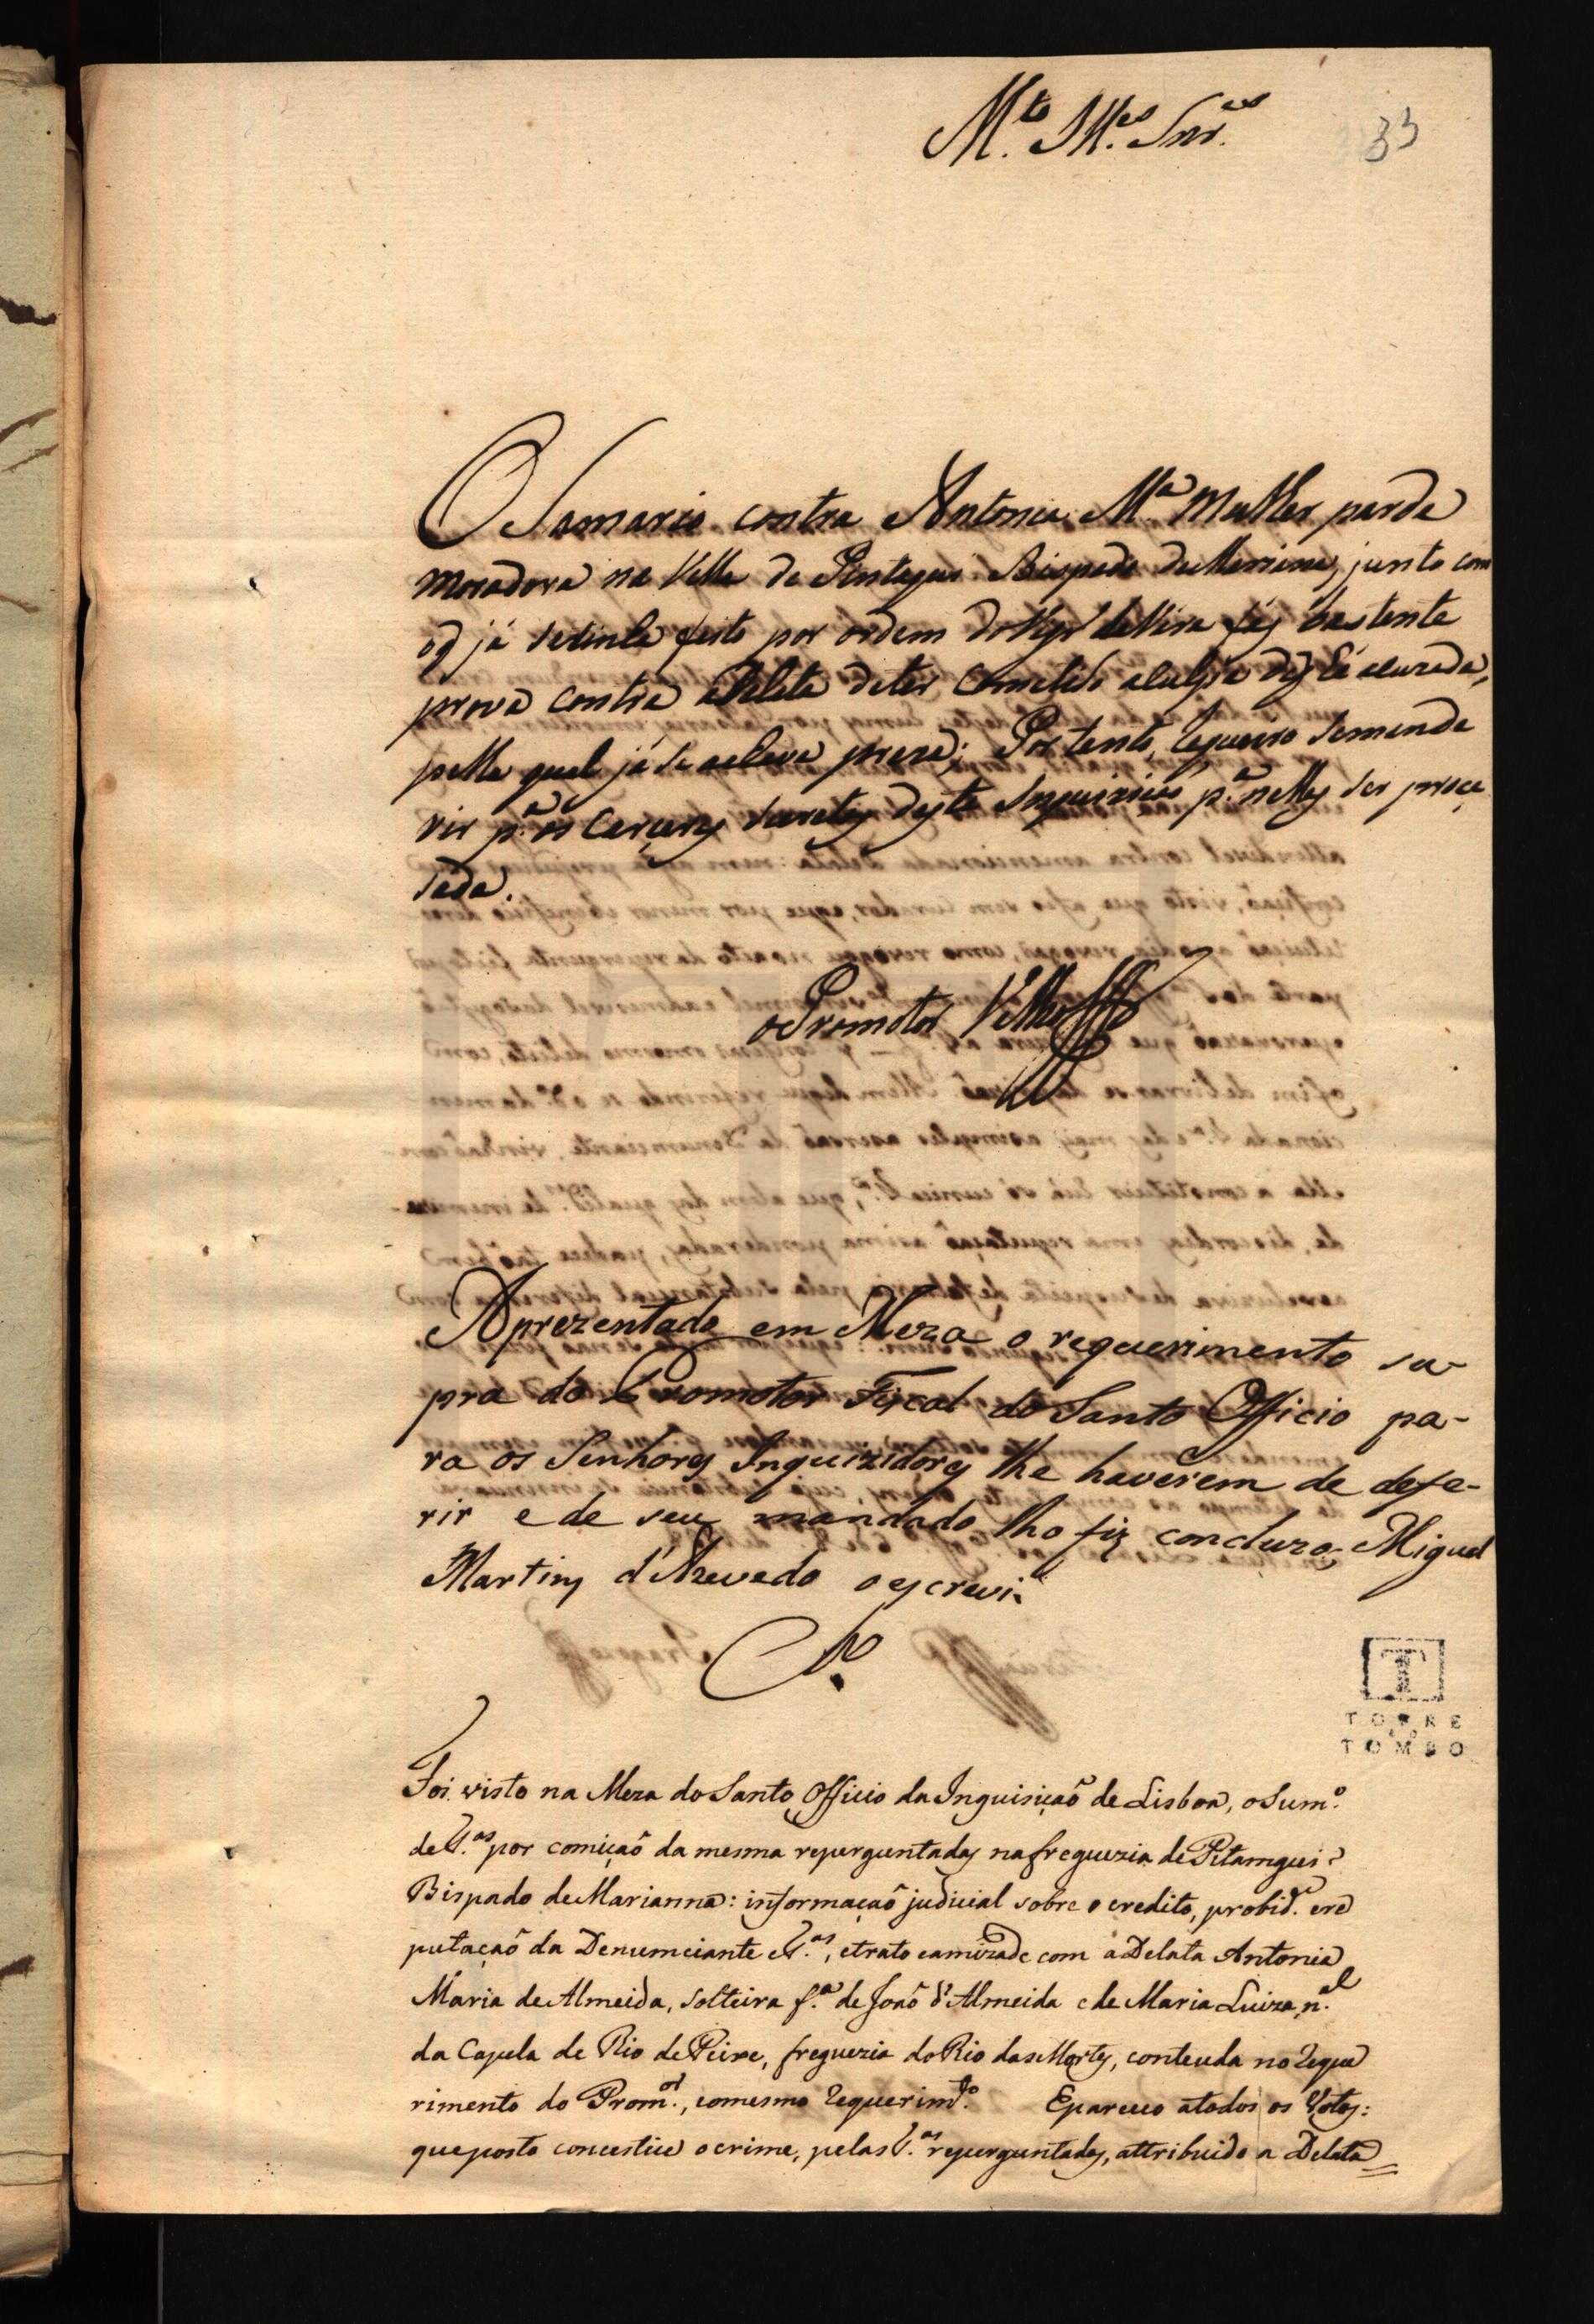 M.to Ill.es Snr.es
33
O Samario contra Antonia M.a Mulher parda
moradora na Villa de Pintagui Bispado de Marriana, junto com
o q já se tinha feito por ordem do Vigr.o faz bastante
prova contra a Delata de ter cometido a culpa de q hé acuzada,
pella qual já se achava preza; Por tanto, requeiro se mande
vir p.a os Carceres secretos desta Inquizicaõ p.a nelles ser proce
sada.
o Promotor Velho
Aprezentado em Meza o requerimento su-
pra do Promotor Fiscal do Santo Officio pa-
ra os Senhores Inquizidores lhe haverem de defe-
rir e de seu mandado lho fiz concluzo; Miguel
Martins d'Azevedo o escrevi.
Cl.o
Foi visto na Meza do Santo Officio da Inquisiçaõ de Lisboa, o Sum.o
de T.as por comiçaõ da mesma reperguntadas na freguezia de Pitamgui
Bispado de Marianna: informaçaõ judicial sobre o credito, probid.e e re
putaçaõ da Denunciante e T.as, e trato e amizade com a Delata Antonia
Maria de Almeida, solteira f.a de Joaõ d'Almeida e de Maria Luiza, n.al
da Capela de Rio de Peixe, freguezia do Rio das Mortes, conteuda no Reque
rimento do Prom.or, e o mesmo Requerim.to. E pareceo a todos os Votos:
que posto concestiu o crime, pelas T.as reperguntadas, attribuido a Delata
TORRE
DO
TOMBO